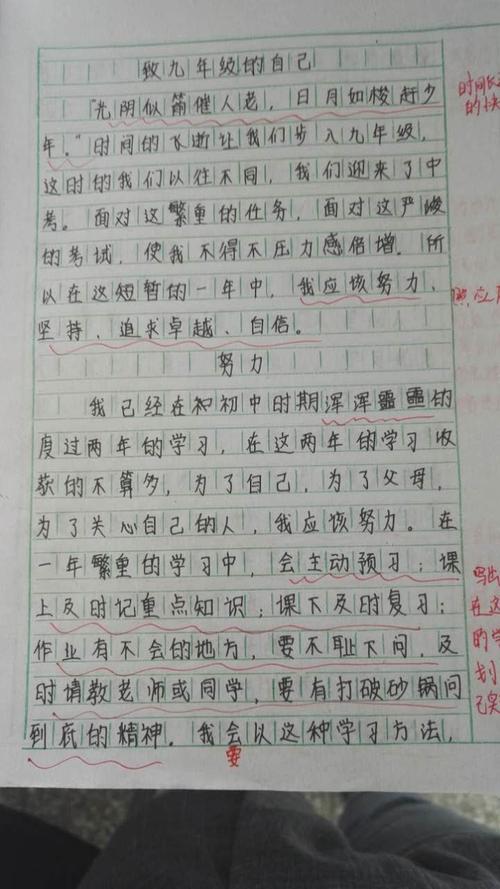 致九年级的自己
"光阴似箭催人老，日月如梭赶少
年。"时间的飞逝让我们步入九年级，
这时的我们以往不同，我们迎来了中
考。面对这繁重的任务，面对这严峻
的考试，使我不得不压力感倍增。所
以在这短暂的一年中，我应该努力、
坚持、追求卓越、自信。
努力
我已经在初中时期浑浑噩噩的
度过两年的学习，在这两年的学习收
获的不算多，为了自己，为了父母，
为了关心自己的人，我应该努力。在
一年繁重的学习中，会主动预习；课
上及时记重点知识；课下及时复习；
作业有不会的地方，要不耻下问，及
时请教老师或同学，要有打破砂锅问
到底的精神。我会以这种学习方法，
要
时间
的快
照应
在这
的学
划